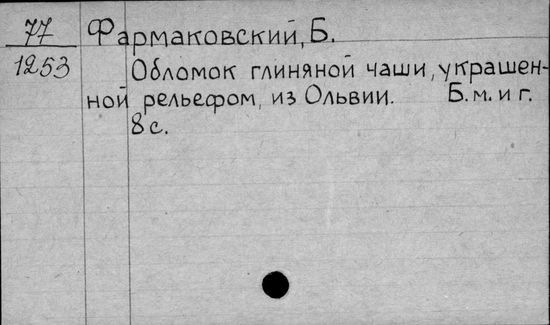 77
Фармаковский, Б.
1253
Обломок глиняной чаши, украшен-
ной рельефом, из Ольвии. Б.м. и г.
8 с.